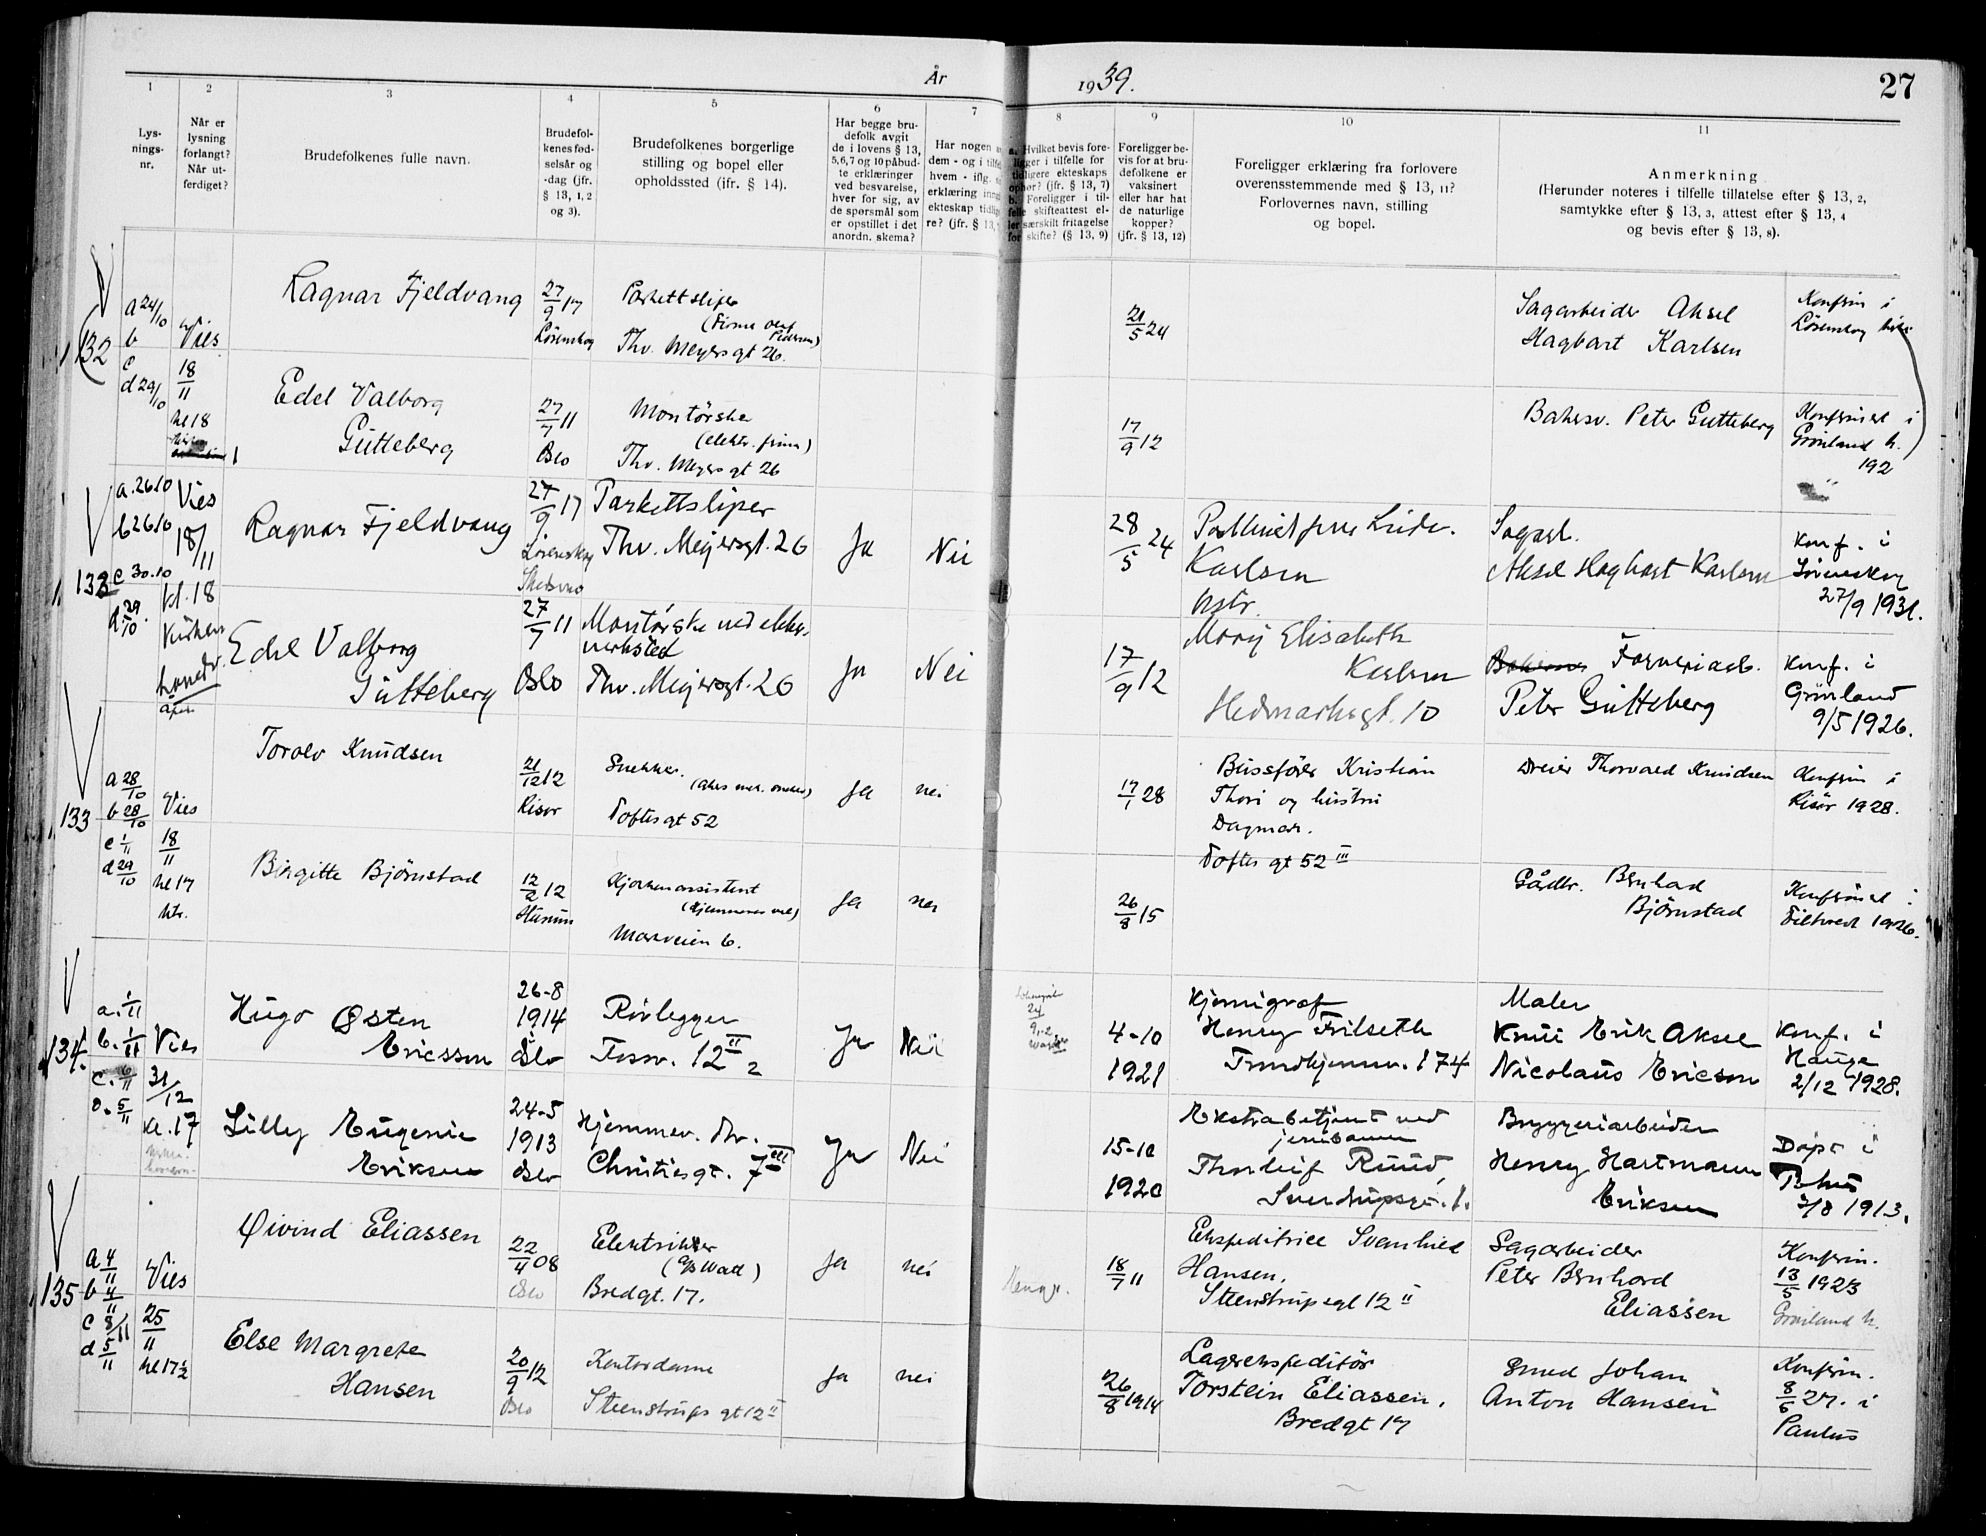 År 1939.
27
1 2 3 4 5 6 7 8 9 10 11
Lys-
nings-
nr.
Når er
lysning
forlangt?
Når ut-
ferdiget?
Brudefolkenes fulle navn.
Brudefol-
kenes fød-
selsår og
-dag (jfr.
§ 13, 1, 2
og 3).
Brudefolkenes borgerlige
stilling og bopel eller
opholdssted (jfr. § 14).
Har begge bru-
defolk avgit
de i lovens § 13,
5,6,7 og 10 påbud-
te erklæringer
ved besvarelse,
hver for sig, av
de spørsmål som
er opstillet i det
anordn. skema?
Har nogen
dem - og i
hvem - iflg.
erklæring
ekteskap
re? (jfr. § 13,
a. Hvilket bevis fore-
ligger i tilfelle for
tidligere ekteskaps
ophør? (jfr. § 13, 7)
b. Foreligger i til-
felle skifteattest el-
ler særskilt fritagelse
for skifte? (§ 13, 9)
Foreligger be-
vis for at bru-
defolkene er
vaksinert
eller har hat
de naturlige
kopper?
(jfr. § 13, 12)
Foreligger erklæring fra forlovere
overensstemmende med § 13, 11?
Forlovernes navn, stilling
og bopel.
Anmerkning
(Herunder noteres i tilfelle tillatelse efter § 13, 2,
samtykke efter § 13, 3, attest efter § 13, 4
og bevis efter § 13, 8).
132
a 24/10
b
c
d 29/10
Vies
18/11
kl 18
Ragnar Fjeldvang
27/9 17
Lørenskog
Parkettsliper
(Firma Olaf
Pedersen)
Thv. Meyersgt 26.
21/5 24
Sagarbeider Aksel
Hagbart Karlsen
Konfirm i
Lørenskog
Edel Valborg
Gütteberg
27/7 11
Oslo
Montørske
(elektr. firma)
Thv. Meyers gt 26
17/9 12
Bakersv. Peter Gütteberg
Konfirmert i
Grønland k.
192
132
a. 26 10
b 26 10
c 30.10
d. 29/10.
Vies
18/11
kl. 18
Kirken
Ragnar Fjeldvang
27/9 17
Lørenskog
Parkettsliper
Thv. Meijersgt. 26
Ja
Nei
28/5 24
Karlsen
Sagarb.
Aksel Hagbart Karlsen
Konf. i
Lørenskog
27/9 1931.
Edel Valborg
Gütteberg
27/7 11
Oslo
Montørske ved elektr.
verksted
Thv. Meijersgt. 26
Ja
Nei
17/9 12
Mary Elisabeth
Karlsen
Hedmarksgt. 10
Farveriarb.
Peter Gütteberg
Konf. i
Grønland
9/5 1926.
133
a 28/10
b 28/10
c 1/11
d 29/10
Vies
18/11
kl 17
Torolv Knudsen
21/12 12
Risør
Snekker.
(Akers mek. verksted)
Toftesgt 52
Ja
nei
17/1 28
Bussfører Kristian
Thori og hustru
Dagmar.
Toftes gt 52 III
Dreier Thorvald Knudsen
Konfirm i
Risør 1928.
Birgitte Bjørnstad
12/2 12
Hurum
Kjøkkenassistent
(Hjemmenes vel)
Maxveien 6.
Ja
nei
26/8 15
Gådbr. Bernhard
Bjørnstad
Konfirmert i
Filtvedt 1926.
134.
a. 1/11
b. 1/11
c. 6/11
d. 5/11
Vies
31/12
kl. 17
Hugo Østen
Ericsson
26-8
1914
Oslo
Rørlegger
Fossv. 12 II 2
Ja
Nei
4-10
1921
Kjemigraf
Henry Frilseth
Trondhjemsv. 174
Maler
Knut Erik Aksel
Nicolaus Ericson
Konf. i
Hauge
2/12 1928.
Lilly Eugenie
Eriksen
24-5
1913
Oslo
Hjemmev. Thr.
Christiesgt. 7 III
Ja
Nei
15-10
1920
Ekstrabetjent ved
jernbanen
Thorleif Ruud
Sverdrupsgt. 1.
Bryggeriarbeider
Henry Hartmann
Eriksen
Døpt i
3/8 1913.
135
a 4/11
b 4/11
c 8/11
d 5/11
Vies
25/11
kl 17½
Øivind Eliassen
22/4 08
Oslo
Elektriker
(A/S Watt)
Bredgt. 17.
Ja
nei
18/7 11
Ekspeditrice Svanhild
Hansen.
Steenstrupsgt 12 II
Sagarbeider
Peter Bernhard
Eliassen
Konfirm.
13/5 1923
Grønland k.
Else Margrete
Hansen
20/9 12
Oslo
Kontordame
Steenstrups gt 12 II
Ja
nei
26/8 1914
Lagerekspeditør
Torstein Eliassen.
Bredgt 17
Smed Johan
Anton Hansen
Konfirm.
8/6 27. i
Paulus